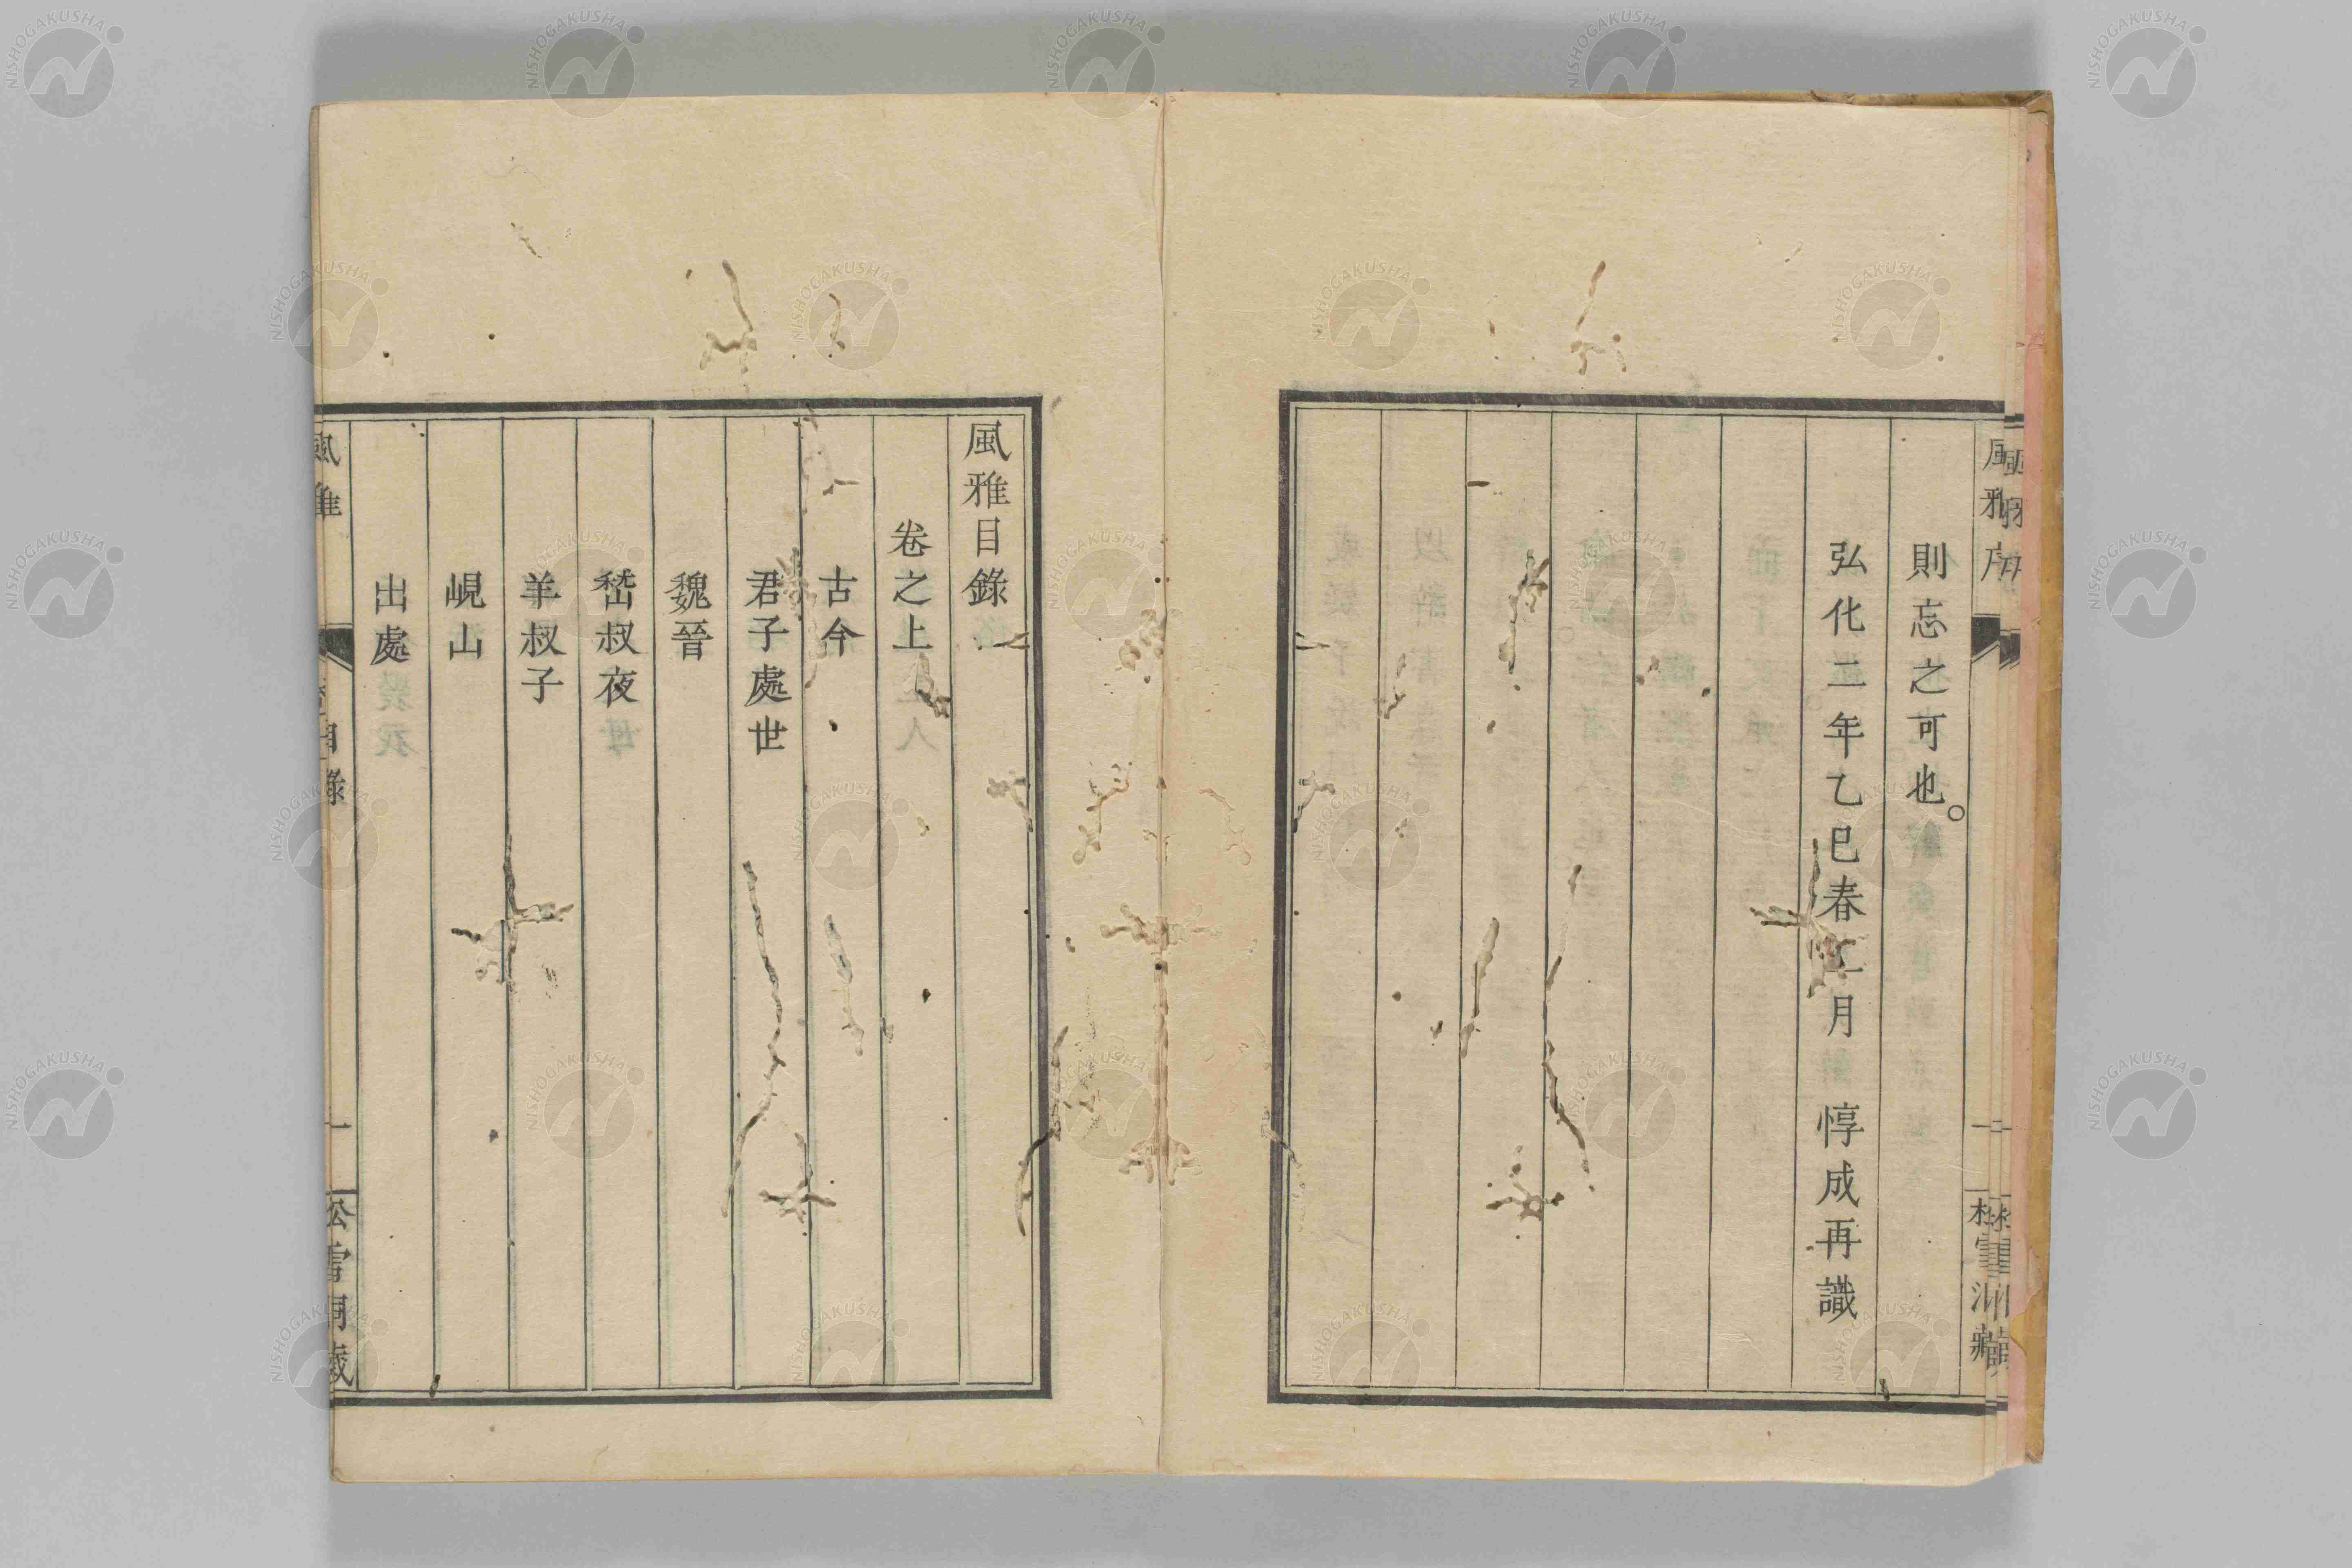 則忘之可也。
弘化二年乙巳春二月 惇成再識
風雅目錄
卷之上
古今
君子處世
魏晉
嵇叔夜
羊叔子
峴山
出處
風雅
目錄
一
NISHOGAKUSHA